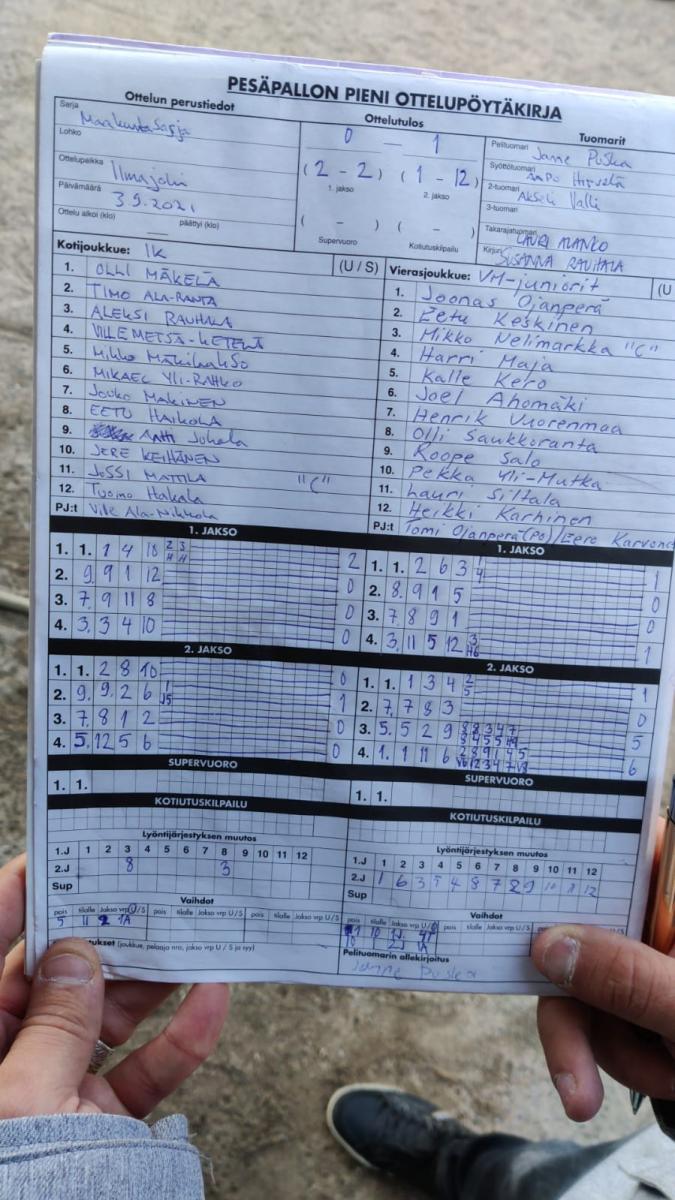 PESÄPALLON PIENI OTTELUPÖYTÄKIRJA
Ottelun perustiedot
Sarja
Maakuntasarja
Lohko
Ottelupaikka
Ilmajoki
Päivämäärä
3.9.2021
Ottelu alkoi (klo) päättyi (klo)
Ottelutulos
0 – 1
(2 - 2) (1 - 12)
1. jakso 2. jakso
( - ) ( - )
Supervuoro Kotiutuskilpailu
Tuomarit
Pelituomari Janne Puska
Syöttötuomari
2-tuomari Akseli Valli
3-tuomari
Takarajatuomari LAURI
Kirjuri SUSANNA RAUHALA
Kotijoukkue: IK (U / S)
1. OLLI MÄKELÄ
2. TIMO ALA-RANTA
3. ALEKSI RAUHALA
4. VILLE METSÄ-KETELÄ
5. Mikko
6. MIKAEL YLI-RAHKO
7. Jouko MÄKINEN
8. EETU HAIKOLA
9. Antti Johala
10. JERE KEIHÄNEN
11. JUSSI MATTILA "C"
12. Tuomo Hakala
PJ:t Ville Ala-Nikkola
Vierasjoukkue: VM-juniorit (U
1. Joonas Ojanperä
2. Eetu Keskinen
3. Mikko Nelimarkka "C"
4. Harri Maja
5. Kalle Kero
6. Joel Ahomäki
7. Henrik Vuorenmaa
8. Olli Saukkoranta
9. Koope Salo
10. Pekka Yli-Mutka
11. Lauri Siltala
12. Heikki Karhinen
PJ:t Tomi Ojanperä (PO) / Eero Karvon
1. JAKSO
1. 1. 1 4 10 2 2
2. 9. 9 1 12 0
3. 7. 9 11 8 0
4. 3. 3 4 10 0
1. JAKSO
1. 1. 2 6 3 1
2. 8. 9 1 5 0
3. 7. 8 9 1 0
4. 3. 11 5 12 1
2. JAKSO
1. 1. 2 8 10 0
2. 9. 9 2 6 1
3. 7. 8 1 2 0
4. 5. 12 5 6 0
2. JAKSO
1. 1. 1 3 4 2 5 1
2. 7. 7 8 3 0
3. 5. 5 2 9 5
4. 1. 1 11 6 6
SUPERVUORO
1. 1.
SUPERVUORO
1. 1.
KOTIUTUSKILPAILU
KOTIUTUSKILPAILU
Lyöntijärjestyksen muutos
1.J 1 2 3 4 5 6 7 8 9 10 11 12
2.J 8 3
Sup
Lyöntijärjestyksen muutos
1.J 1 2 3 4 5 6 7 8 9 10 11 12
2.J 1 6 3 5 4 8 7 2 9 10 11 12
Sup
Vaihdot
pois tilalle Jakso vrp U / S pois tilalle Jakso vrp U / S pois tilalle Jakso vrp U / S
5 11 2 1A
Vaihdot
pois tilalle Jakso vrp U / S pois tilalle Jakso vrp U / S pois
10 1 2J 1A
(joukkue, pelaaja nro, jakso vrp U / S ja syy)
Pelituomarin allekirjoitus
Janne Puska